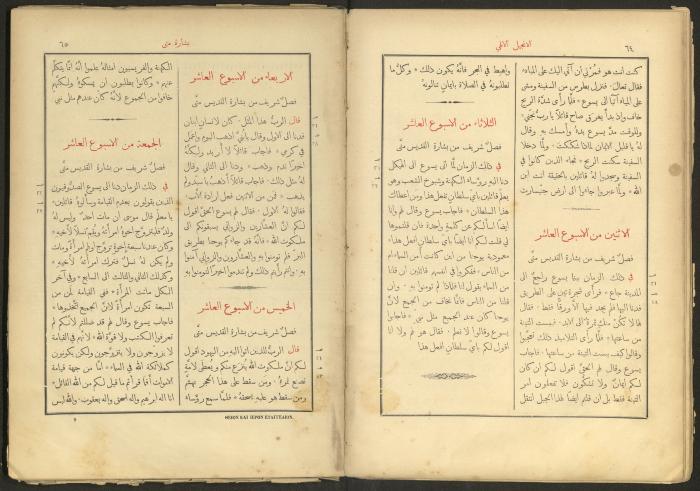 ٦٤
الانجيل الالهي
كنت انت هو فمُرني ان آتي اليك على المياه
فقال تعالَ * فنزل بطرس من السفينة ومشى
على المياه آتيًا الى يسوع * فلمَّا رأى شدَّة الريح
خاف واذ بدأَ يغرق صاح قائلًا يا ربُّ نجِّني *
وللوقت مدَّ يسوع يدهُ وأَمسك بهِ وقال
لهُ يا قليل الايمان لماذا شككتَ * ولمَّا دخلا
السفينة سكنت الريح * فجاء الذين كانوا في
السفينة وسجدوا لهُ قائلين بالحقيقة انت ابن
الله * ولمَّا عبروا جاءوا الى ارض جنيسارت
الاثنين من الاسبوع العاشر
فصلٌ شريف من بشارة القديس متَّى
في ذلك الزمان بينا يسوع راجعٌ الى
المدينة جاع * فرأى شجرة تين على الطريق
فدنا اليها فلم يجد فيها الَّا ورقًا فقط * فقال
لها لا تكُنْ منكِ ثمرةٌ الى الابد * فيبست التينة
من ساعتها * فلمَّا رأى التلاميذ ذلك تعجَّبوا
وقالوا كيف يبست التينة من ساعتها * فاجاب
يسوع وقال لهم الحقَّ اقول لكم ان كان
لكم ايمانٌ ولا تشكُّون فلا تفعلون امر
التينة فقط بل ان قلتم ايضًا لهذا الجبل انتقل
واهبط في البحر فانَّهُ يكون ذلك * وكلُّ ما
تطلبونهُ في الصلاة بايمانٍ تنالونهُ
الثلاثاء من الاسبوع العاشر
فصلٌ شريف من بشارة القديس متَّى
في ذلك الزمان لمَّا اتى يسوع الى الهيكل
دنا اليهِ رؤساء الكهنة وشيوخ الشعب وهو
يعلّم قائلين بأيِّ سلطانٍ تفعل هذا ومن اعطاك
هذا السلطان * فاجاب يسوع وقال لهم وانا
ايضًا اسألكم عن كلمةٍ واحدة فان قلتموها
لي قلت لكم انا ايضًا بايِّ سلطانٍ افعل هذا *
معموديَّة يوحنا من اين كانت أَمن السماء ام
من الناس * ففكَّروا في انفسهم قائلين ان قلنا
من السماء يقول لنا فلماذا لم تؤمنوا بهِ * وان
قلنا من الناس فانَّا نخاف من الجمع لانَّ
يوحنا كان عند الجميع مثل نبيٍّ * فاجابوا
يسوع وقالوا لا نعلم * فقال هو لهم ولا انا
اقول لكم بايِّ سلطانٍ افعل هذا
بشارة متى
٦٥
الاربعاء من الاسبوع العاشر
فصلٌ شريف من بشارة القديس متَّى
قال الربُّ هذا المثل * كان لانسانٍ ابنان
فدنا الى الاول وقال يا بنيَّ اذهب اليوم واعمل
في كرمي * فاجاب قائلًا لا أُريد ولكنَّهُ
اخيرًا ندم وذهب * ودنا الى الثاني وقال
لهُ مثل ذلك * فاجاب قائلًا أَذهب يا سيِّد ولم
يذهب * فمن من الاثنين فعل ارادة الاب *
فقالوا لهُ الاول * فقال لهم يسوع الحقَّ اقول
لكم انَّ العشَّارين والزواني يسبقونكم الى
ملكوت الله * فانَّهُ قد جاءكم يوحنا بطريق
البرِّ فلم تؤمنوا بهِ * والعشَّارون والزواني آمنوا
بهِ * وانتم رأيتم ذلك ولم تندموا اخيرًا لتؤمنوا بهِ
الخميس من الاسبوع العاشر
فصلٌ شريف من بشارة القديس متَّى
قال الربُّ للذين اتوا اليهِ من اليهود اقول
لكم انَّ ملكوت الله يُنزَع منكم ويُعطَى لامَّةٍ
تصنع ثمرهُ * ومن سقط على هذا الحجر يتهشَّم
ومن سقط هو عليهِ يسحقهُ * فلمَّا سمع رؤساء
الكهنة والفريسيون امثالهُ علموا أَنَّهُ انَّما يتكلَّم
عنهم * وكانوا يطلبون ان يمسكوهُ ولكنَّهم
خافوا من الجموع لانَّهُ كان عندهم مثل نبيٍّ
الجمعة من الاسبوع العاشر
فصلٌ شريف من بشارة القديس متَّى
في ذلك الزمان دنا الى يسوع الصدُّوقيون
الذين يقولون بعدم القيامة وسألوهُ قائلين *
يا معلّم قال موسى ان مات احدٌ وليس لهُ
ولدٌ فليتزوَّج اخوهُ امرأتهُ ويُقِم نسلًا لاخيهِ *
وكان عندنا سبعة اخوةٍ تزوَّج اولهم امرأةً ومات
ولم يكن لهُ نسلٌ فترك امرأَتهُ لاخيهِ *
وكذلك الثاني والثالث الى السابع * وفي آخر
الكل ماتت المرأة * ففي القيامة لمن من
السبعة تكون امرأةً لانَّ الجميع اتَّخذوها *
فاجاب يسوع وقال لهم قد ضللتم لانكم لم
تعرفوا الكتب ولا قوَّة الله * لانَّهم في القيامة
لا يزوِّجون ولا يتزوَّجون ولكن يكونون
كملائكة الله في السماء * امَّا من جهة قيامة
الاموات أَفما قرأتم ما قيل لكم من الله القائل *
انا اله ابرهيم واله اسحق واله يعقوب * والله ليس
ΘΕΙΟΝ ΚΑΙ ΙΕΡΟΝ ΕΥΑΓΓΕΛΙΟΝ.